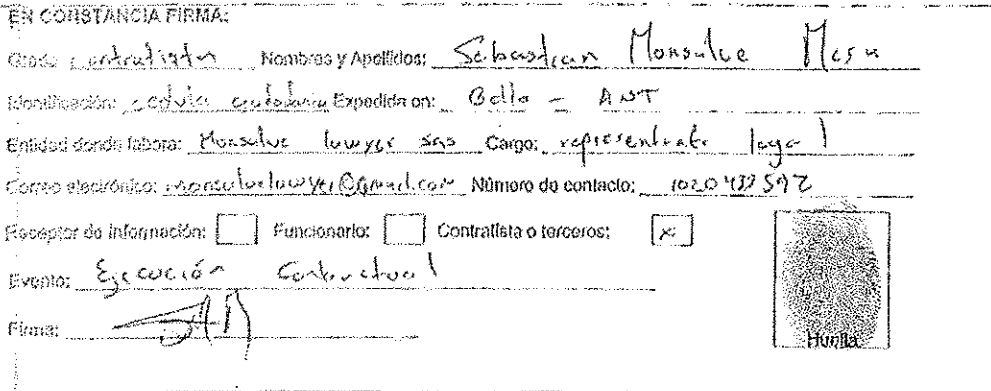 EN CONSTANCIA FIRMA:
Grado contratista Nombres y Apellidos: Sebastian Monsalve Mesa
Identificación: cedula ciudadania Expedida en: Bello - ANT
Entidad donde labora: Monsalve lawyer sas Cargo: representrate legal
Correo electrónico: monsalvelawyer@Gmail.com Número de contacto:
Receptor de información: Funcionario: Contratista o terceros: x
Evento: Ejecución Contractual
Firma:
Huella